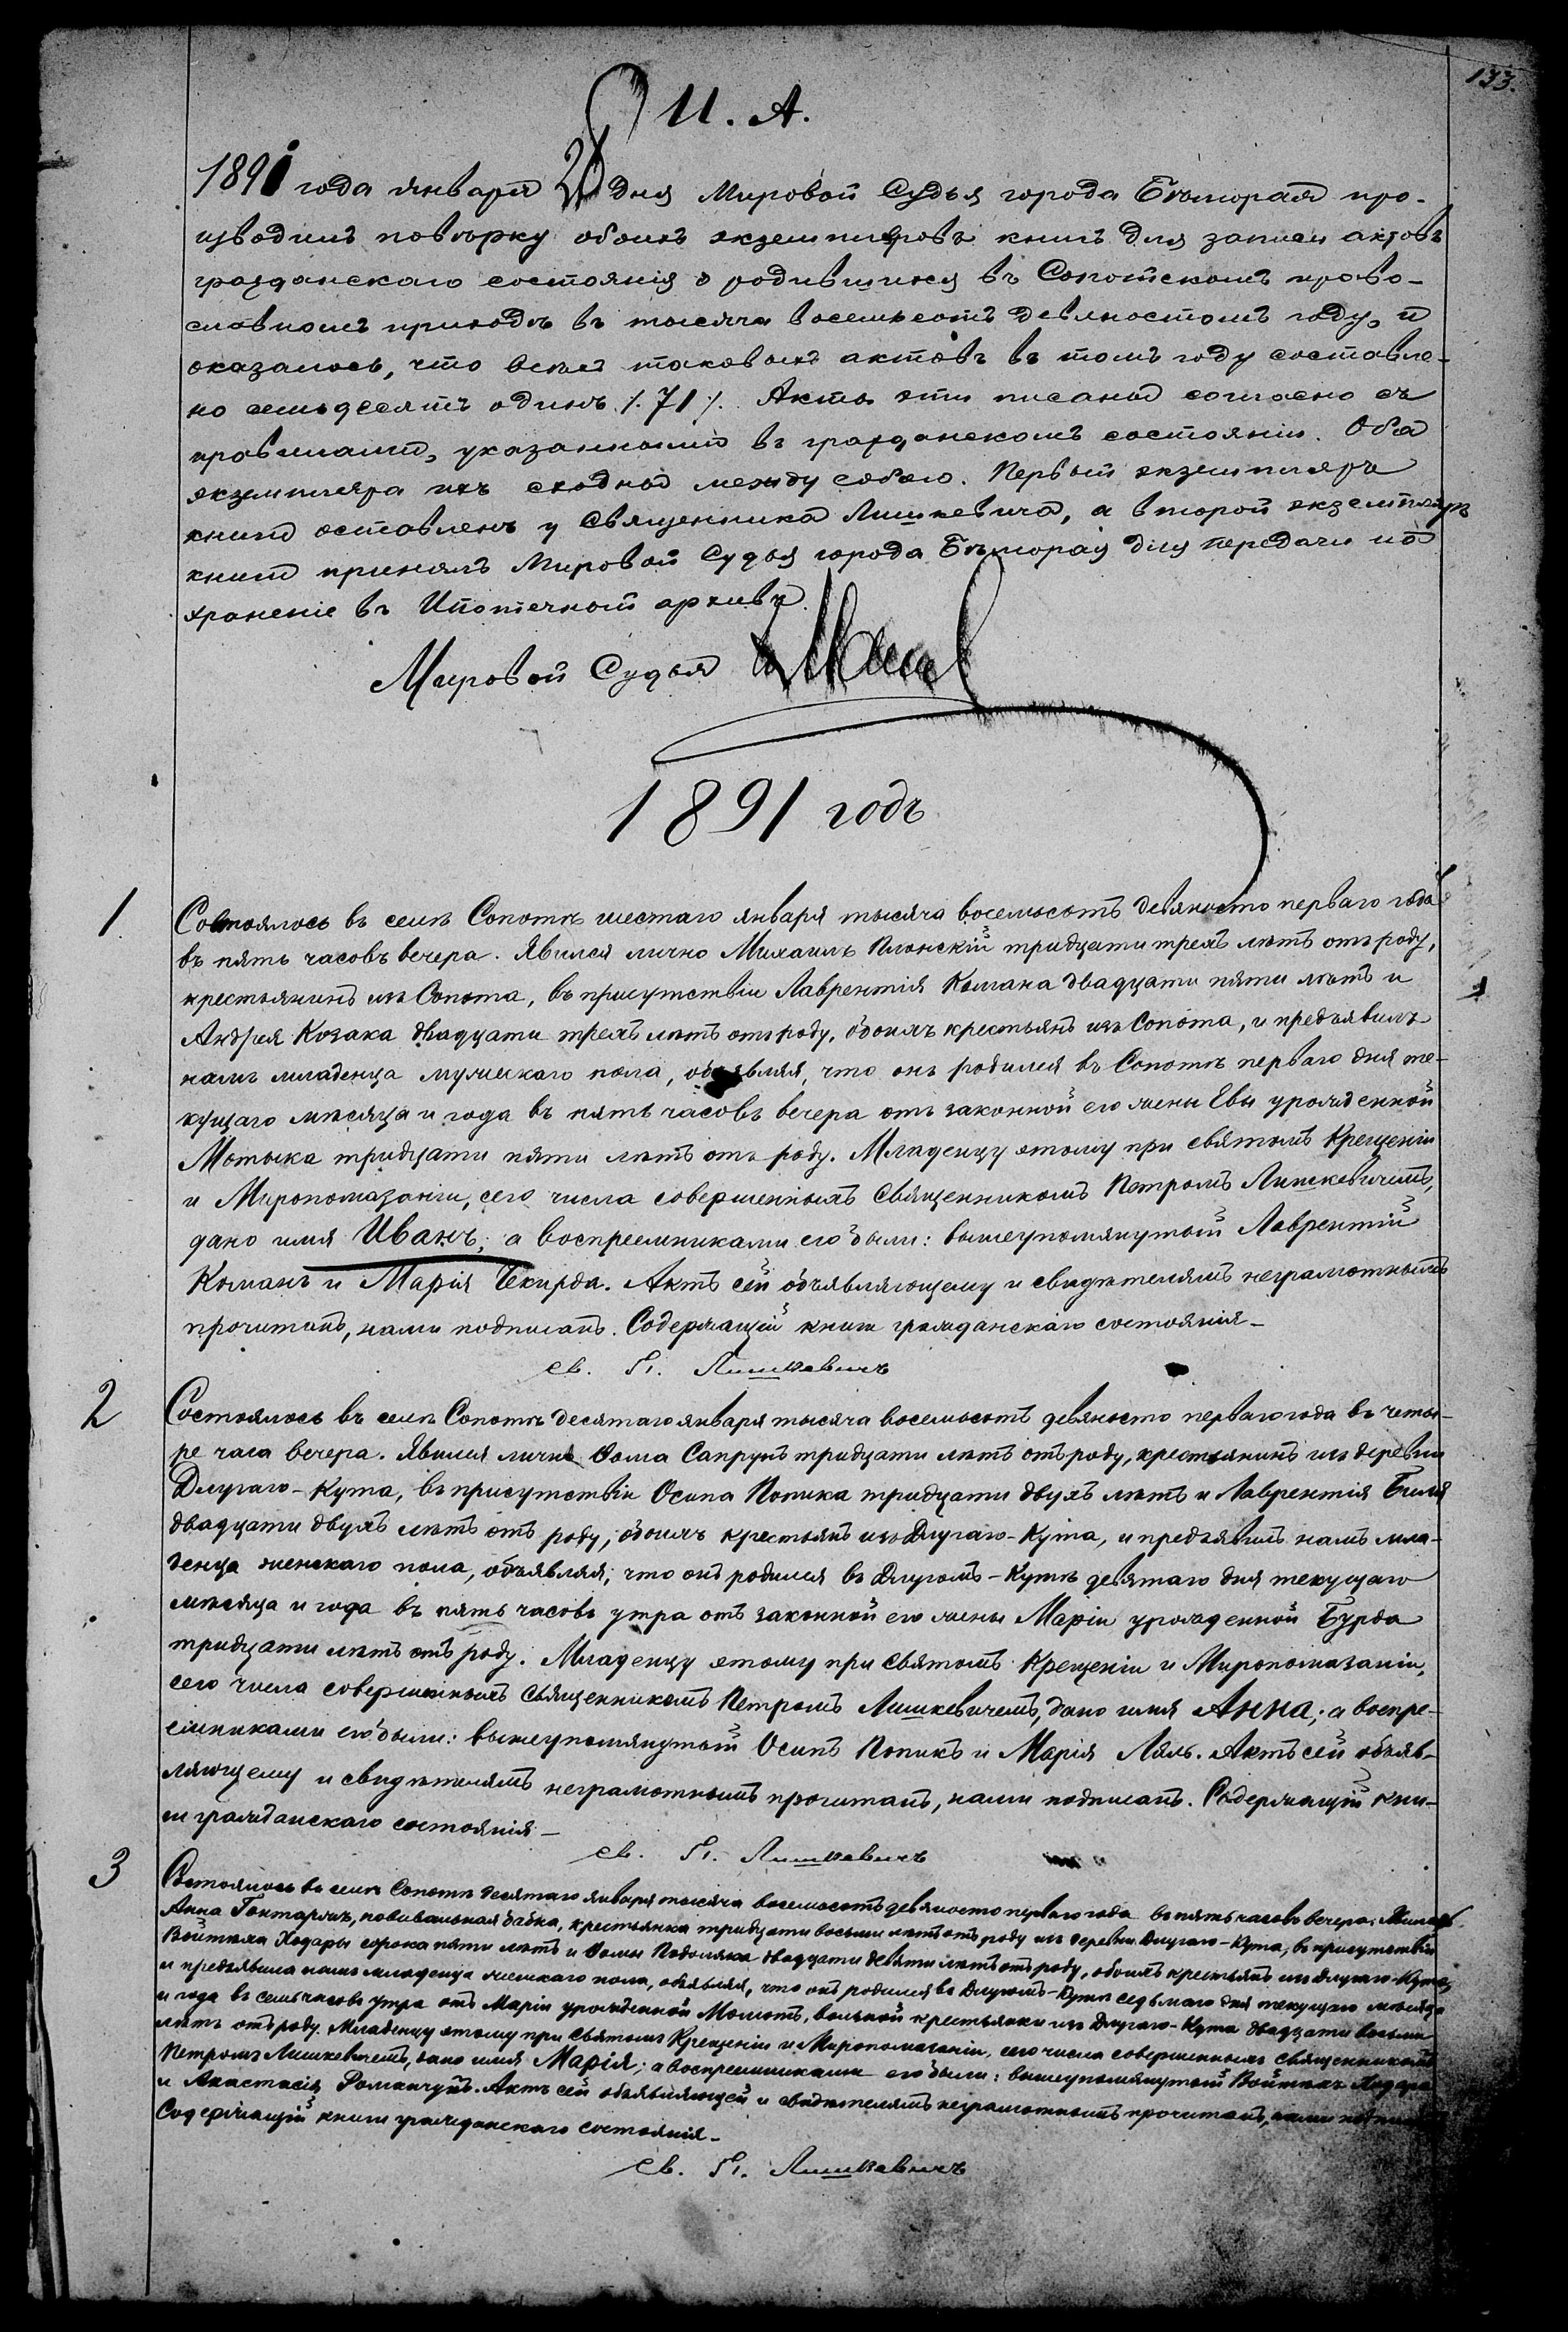 133.
И. А.
1891 года января 2 дня Мировой Судья города Бѣлгорая про-
изводилъ повѣрку обоихъ экземпляровъ книгъ для записи актовъ
гражданскаго состоянія о родившихся въ Сопотскомъ право-
славномъ приходѣ въ тысяча восемьсотъ девяностомъ году, и
оказалось, что всѣхъ таковыхъ актовъ въ томъ году составле-
но семьдесятъ одинъ /.71/. Акты эти писаны согласно съ
правилами, указанными въ гражданскомъ состояніи. Оба
экземпляра ихъ сходны между собою. Первый экземпляръ
книги оставленъ у Священника Лишкевича, а второй экземпляръ
книги принялъ Мировой Судья города Бѣлгорая для передачи на
храненіе въ Ипотечный архивъ.
Мировой Судья
1891 годъ
1
Состоялось въ селѣ Сопотѣ шестаго января тысяча восемьсотъ девяносто перваго года
въ пять часовъ вечера. Явился лично Михаилъ Плонскій тридцати трехъ лѣтъ отъ роду,
крестьянинъ изъ Сопота, въ присутствіи Лаврентія Комана двадцати пяти лѣтъ и
Андрея Козака двадцати трехъ лѣтъ отъ роду, обоихъ крестьянъ изъ Сопота, и предъявилъ
намъ младенца мужескаго пола, объявляя, что онъ родился въ Сопотѣ перваго дня те-
кущаго мѣсяца и года въ пять часовъ вечера отъ законной его жены Евы урожденной
Мотыка тридцати пяти лѣтъ отъ роду. Младенцу этому при святомъ Крещеніи
и Миропомазаніи, сего числа совершенныхъ Священникомъ Петромъ Лишкевичемъ,
дано имя Иванъ; а воспреемниками его были: вышеупомянутый Лаврентій
Команъ и Марія Чекирда. Актъ сей объявляющему и свидѣтелямъ неграмотнымъ
прочитанъ, нами подписанъ. Содержащій книги гражданскаго состоянія –
св. П. Лишкевичъ
2
Состоялось въ селѣ Сопотѣ десятаго января тысяча восемьсотъ девяносто перваго года въ четы-
ре часа вечера. Явился лично Ѳома Сапрунъ тридцати лѣтъ отъ роду, крестьянинъ изъ деревни
Длугаго-Кута, въ присутствіи Осипа Попика тридцати двухъ лѣтъ и Лаврентія Биля
двадцати двухъ лѣтъ отъ роду, обоихъ крестьянъ изъ Длугаго-Кута, и предъявилъ намъ мла-
денца женскаго пола, объявляя, что онъ родился въ Длугомъ-Кутѣ девятаго дня текущаго
мѣсяца и года въ пять часовъ утра отъ законной его жены Маріи урожденной Бурда
тридцати лѣтъ отъ роду. Младенцу этому при святомъ Крещеніи и Миропомазаніи,
сего числа совершенныхъ Священникомъ Петромъ Лишкевичемъ, дано имя Анна; а воспре-
емниками его были: вышеупомянутый Осипъ Попикъ и Марія Ляль. Актъ сей объяв-
ляющему и свидѣтелямъ неграмотнымъ прочитанъ, нами подписанъ. Содержащій кни-
ги гражданскаго состоянія –
св. П. Лишкевичъ
3
Состоялось въ селѣ Сопотѣ десятаго января тысяча восемьсотъ девяносто перваго года въ пять часовъ вечера. Явилась
Анна Гонтаржъ, повивальная бабка, крестьянка тридцати восьми лѣтъ отъ роду изъ деревни Длугаго-Кута, въ присутствіи
Войтѣха Ходары сорока пяти лѣтъ и Ѳомы Подоляка двадцати девяти лѣтъ отъ роду, обоихъ крестьянъ изъ Длугаго-Кута,
и предъявила намъ младенца женскаго пола, объявляя, что онъ родился въ Длугомъ-Кутѣ седьмаго дня текущаго мѣсяца
и года въ семь часовъ утра отъ Маріи урожденной Момотъ, вольной крестьянки изъ Длугаго-Кута двадцати восьми
лѣтъ отъ роду. Младенцу этому при святомъ Крещеніи и Миропомазаніи, сего числа совершенныхъ священникомъ
Петромъ Лишкевичемъ, дано имя Марія; а воспреемниками его были: вышеупомянутый Войтѣхъ Ходара
и Анастасія Романчукъ. Актъ сей объявляющей и свидѣтелямъ неграмотнымъ прочитанъ, нами подписанъ
Содержащій книги гражданскаго состоянія –
св. П. Лишкевичъ